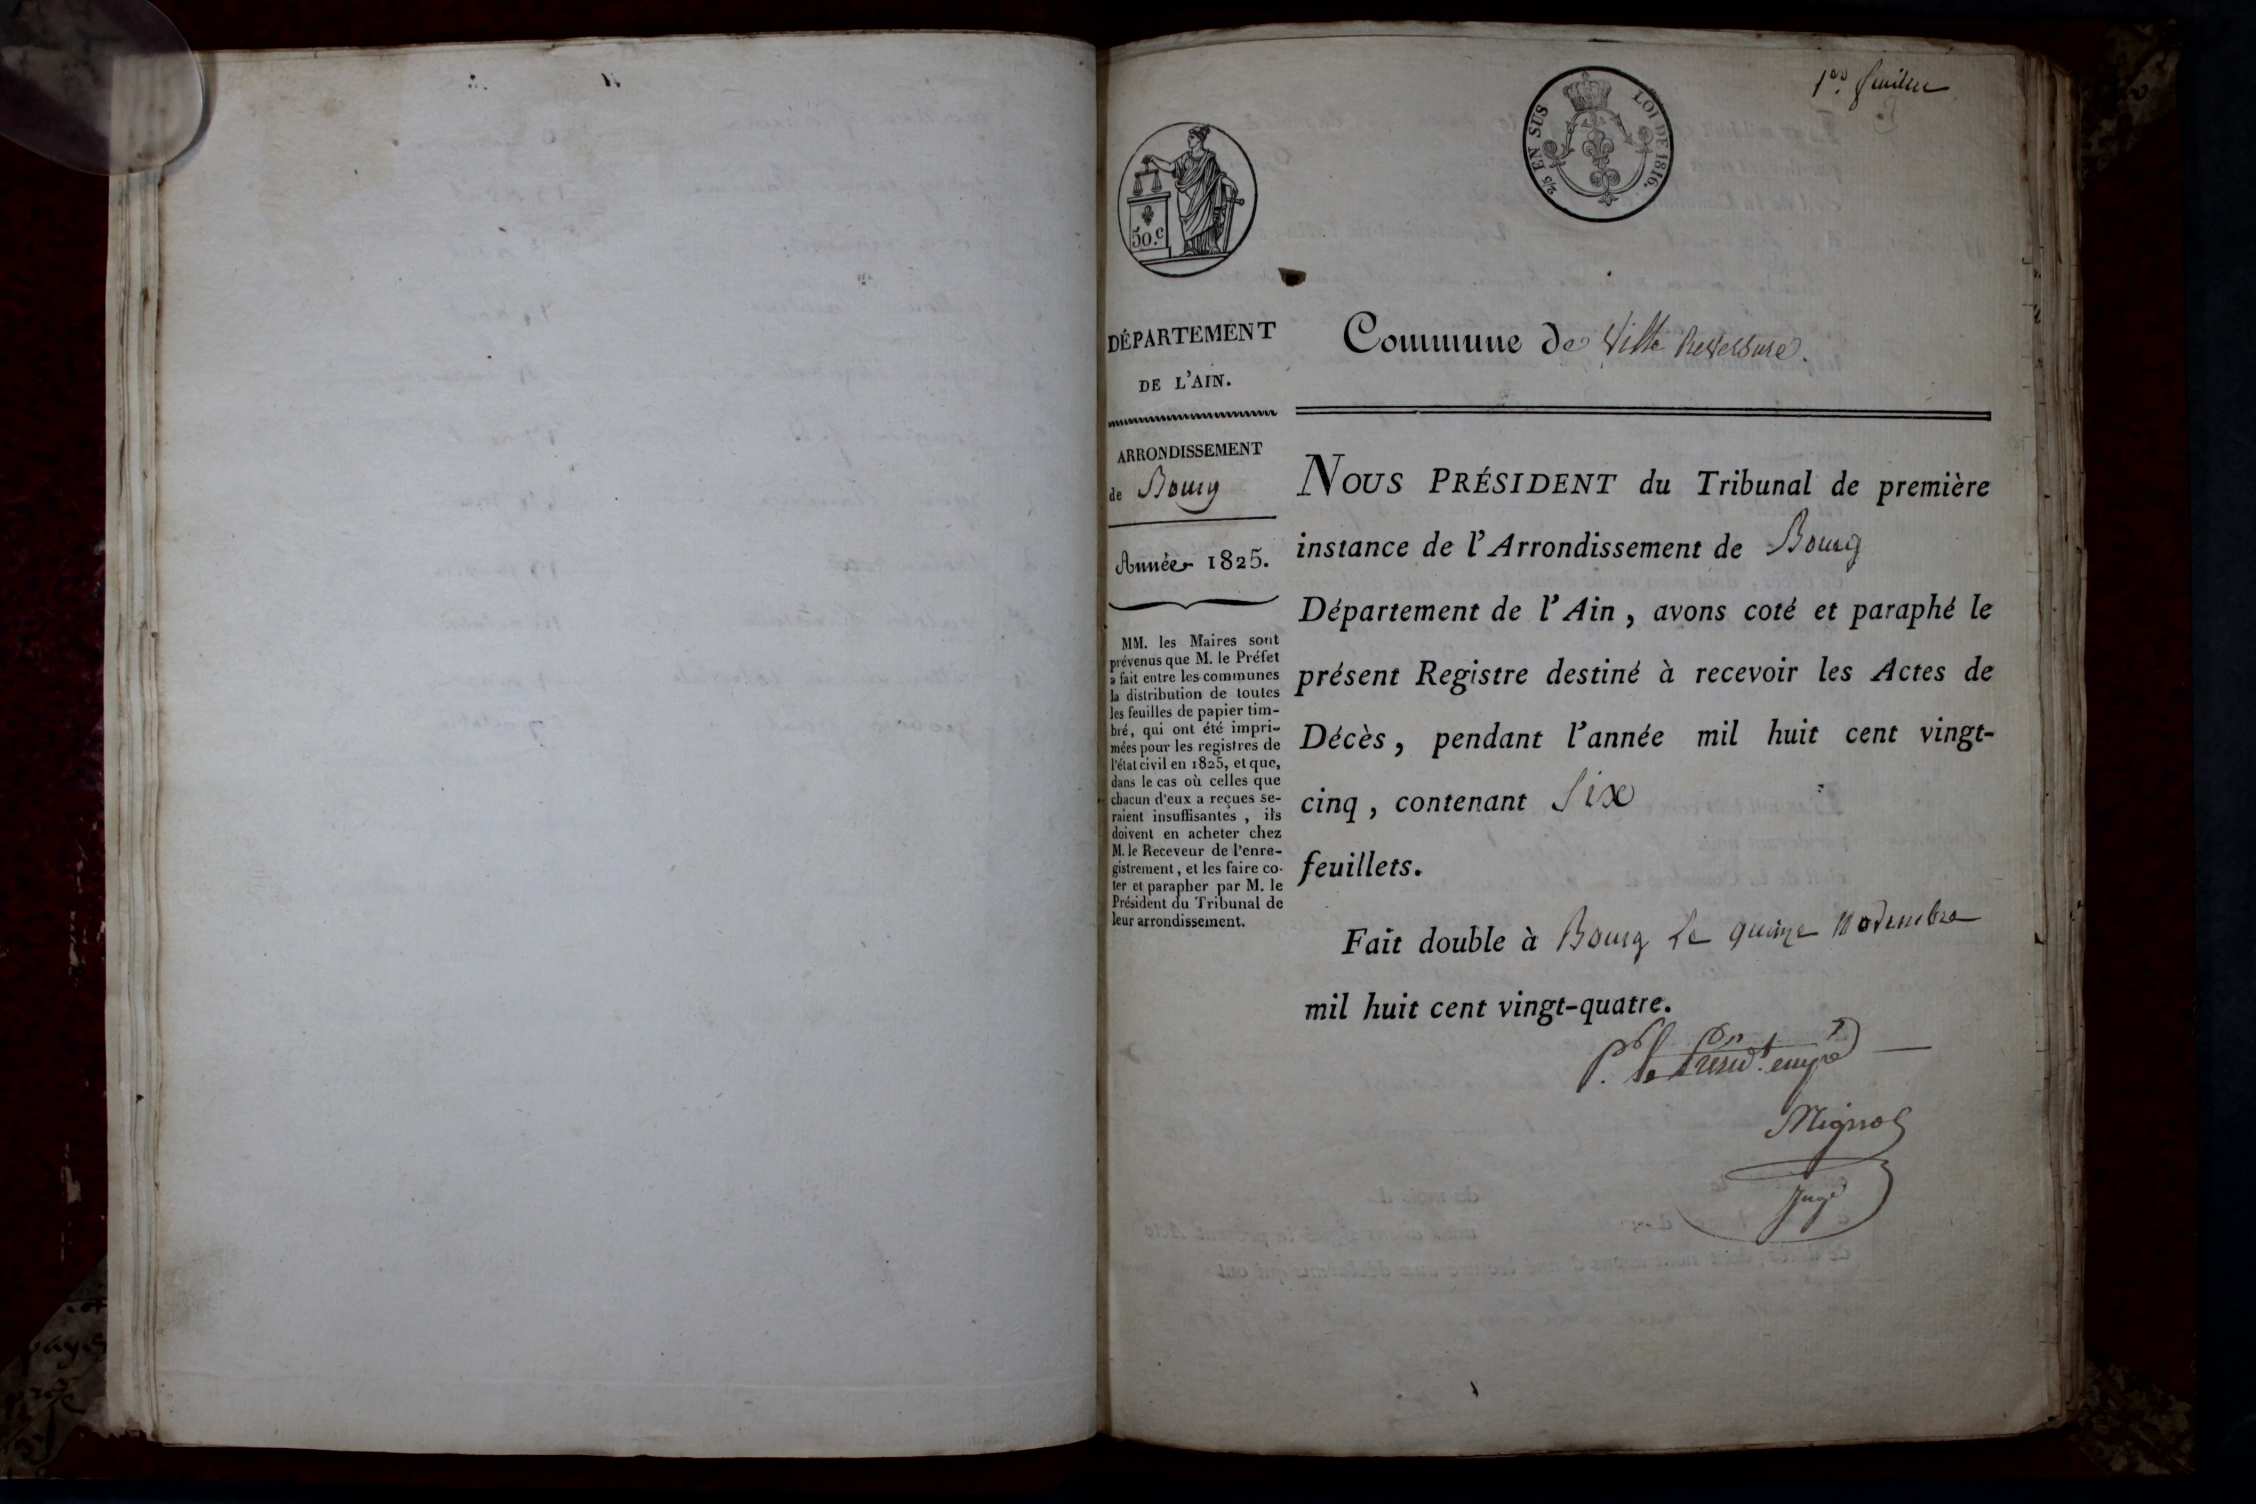 1er feuillet
2/5 EN SUS
LOI DE 1816.
50.c
DÉPARTEMENT
DE L'AIN.
ARRONDISSEMENT
de Bourg
Année 1825.
MM. les Maires sont
prévenus que M. le Préfet
a fait entre les communes
la distribution de toutes
les feuilles de papier tim-
bré, qui ont été impri-
mées pour les registres de
l'état civil en 1825, et que,
dans le cas où celles que
chacun d'eux a reçues se-
raient insuffisantes, ils
doivent en acheter chez
M. le Receveur de l'enre-
gistrement, et les faire co-
ter et parapher par M. le
Président du Tribunal de
leur arrondissement.
Commune de Ville Reversure.
NOUS PRÉSIDENT du Tribunal de première
instance de l'Arrondissement de Bourg
Département de l'Ain, avons coté et paraphé le
présent Registre destiné à recevoir les Actes de
Décès, pendant l'année mil huit cent vingt-
cinq, contenant Six
feuillets.
Fait double à Bourg le quinze Novembre
mil huit cent vingt-quatre.
Pr le Présidt empé
Juge